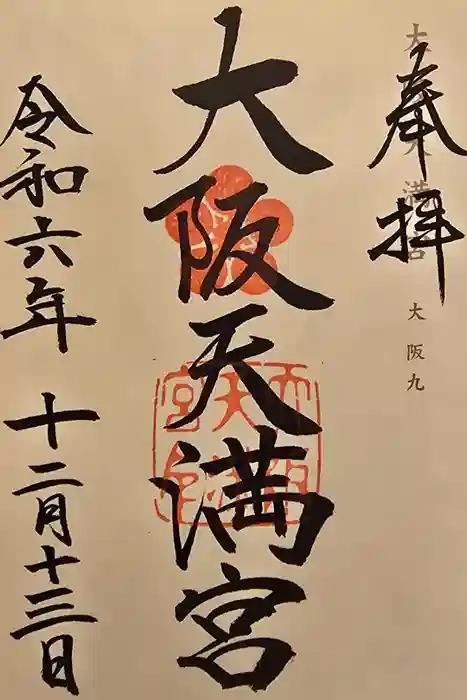 奉拝
大阪天満宮
大阪九
大阪天満宮
令和六年 十二月十三日